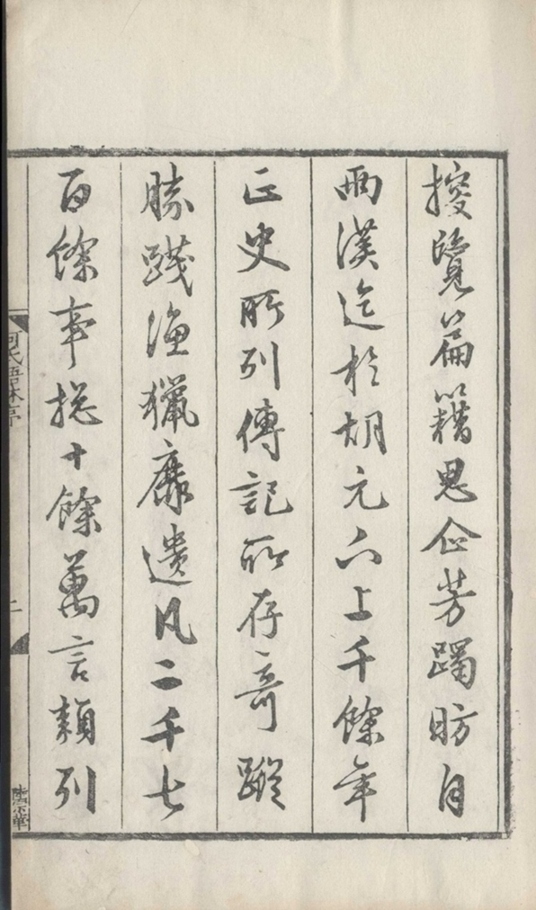 搜覽篇籍思企芳躅昉自
兩漢迄於胡元下上千餘年
正史所列傳記所存奇蹤
勝踐漁獵靡遺凡二千七
百餘事揔十餘萬言類列
何氏語林序
二
陸宗華